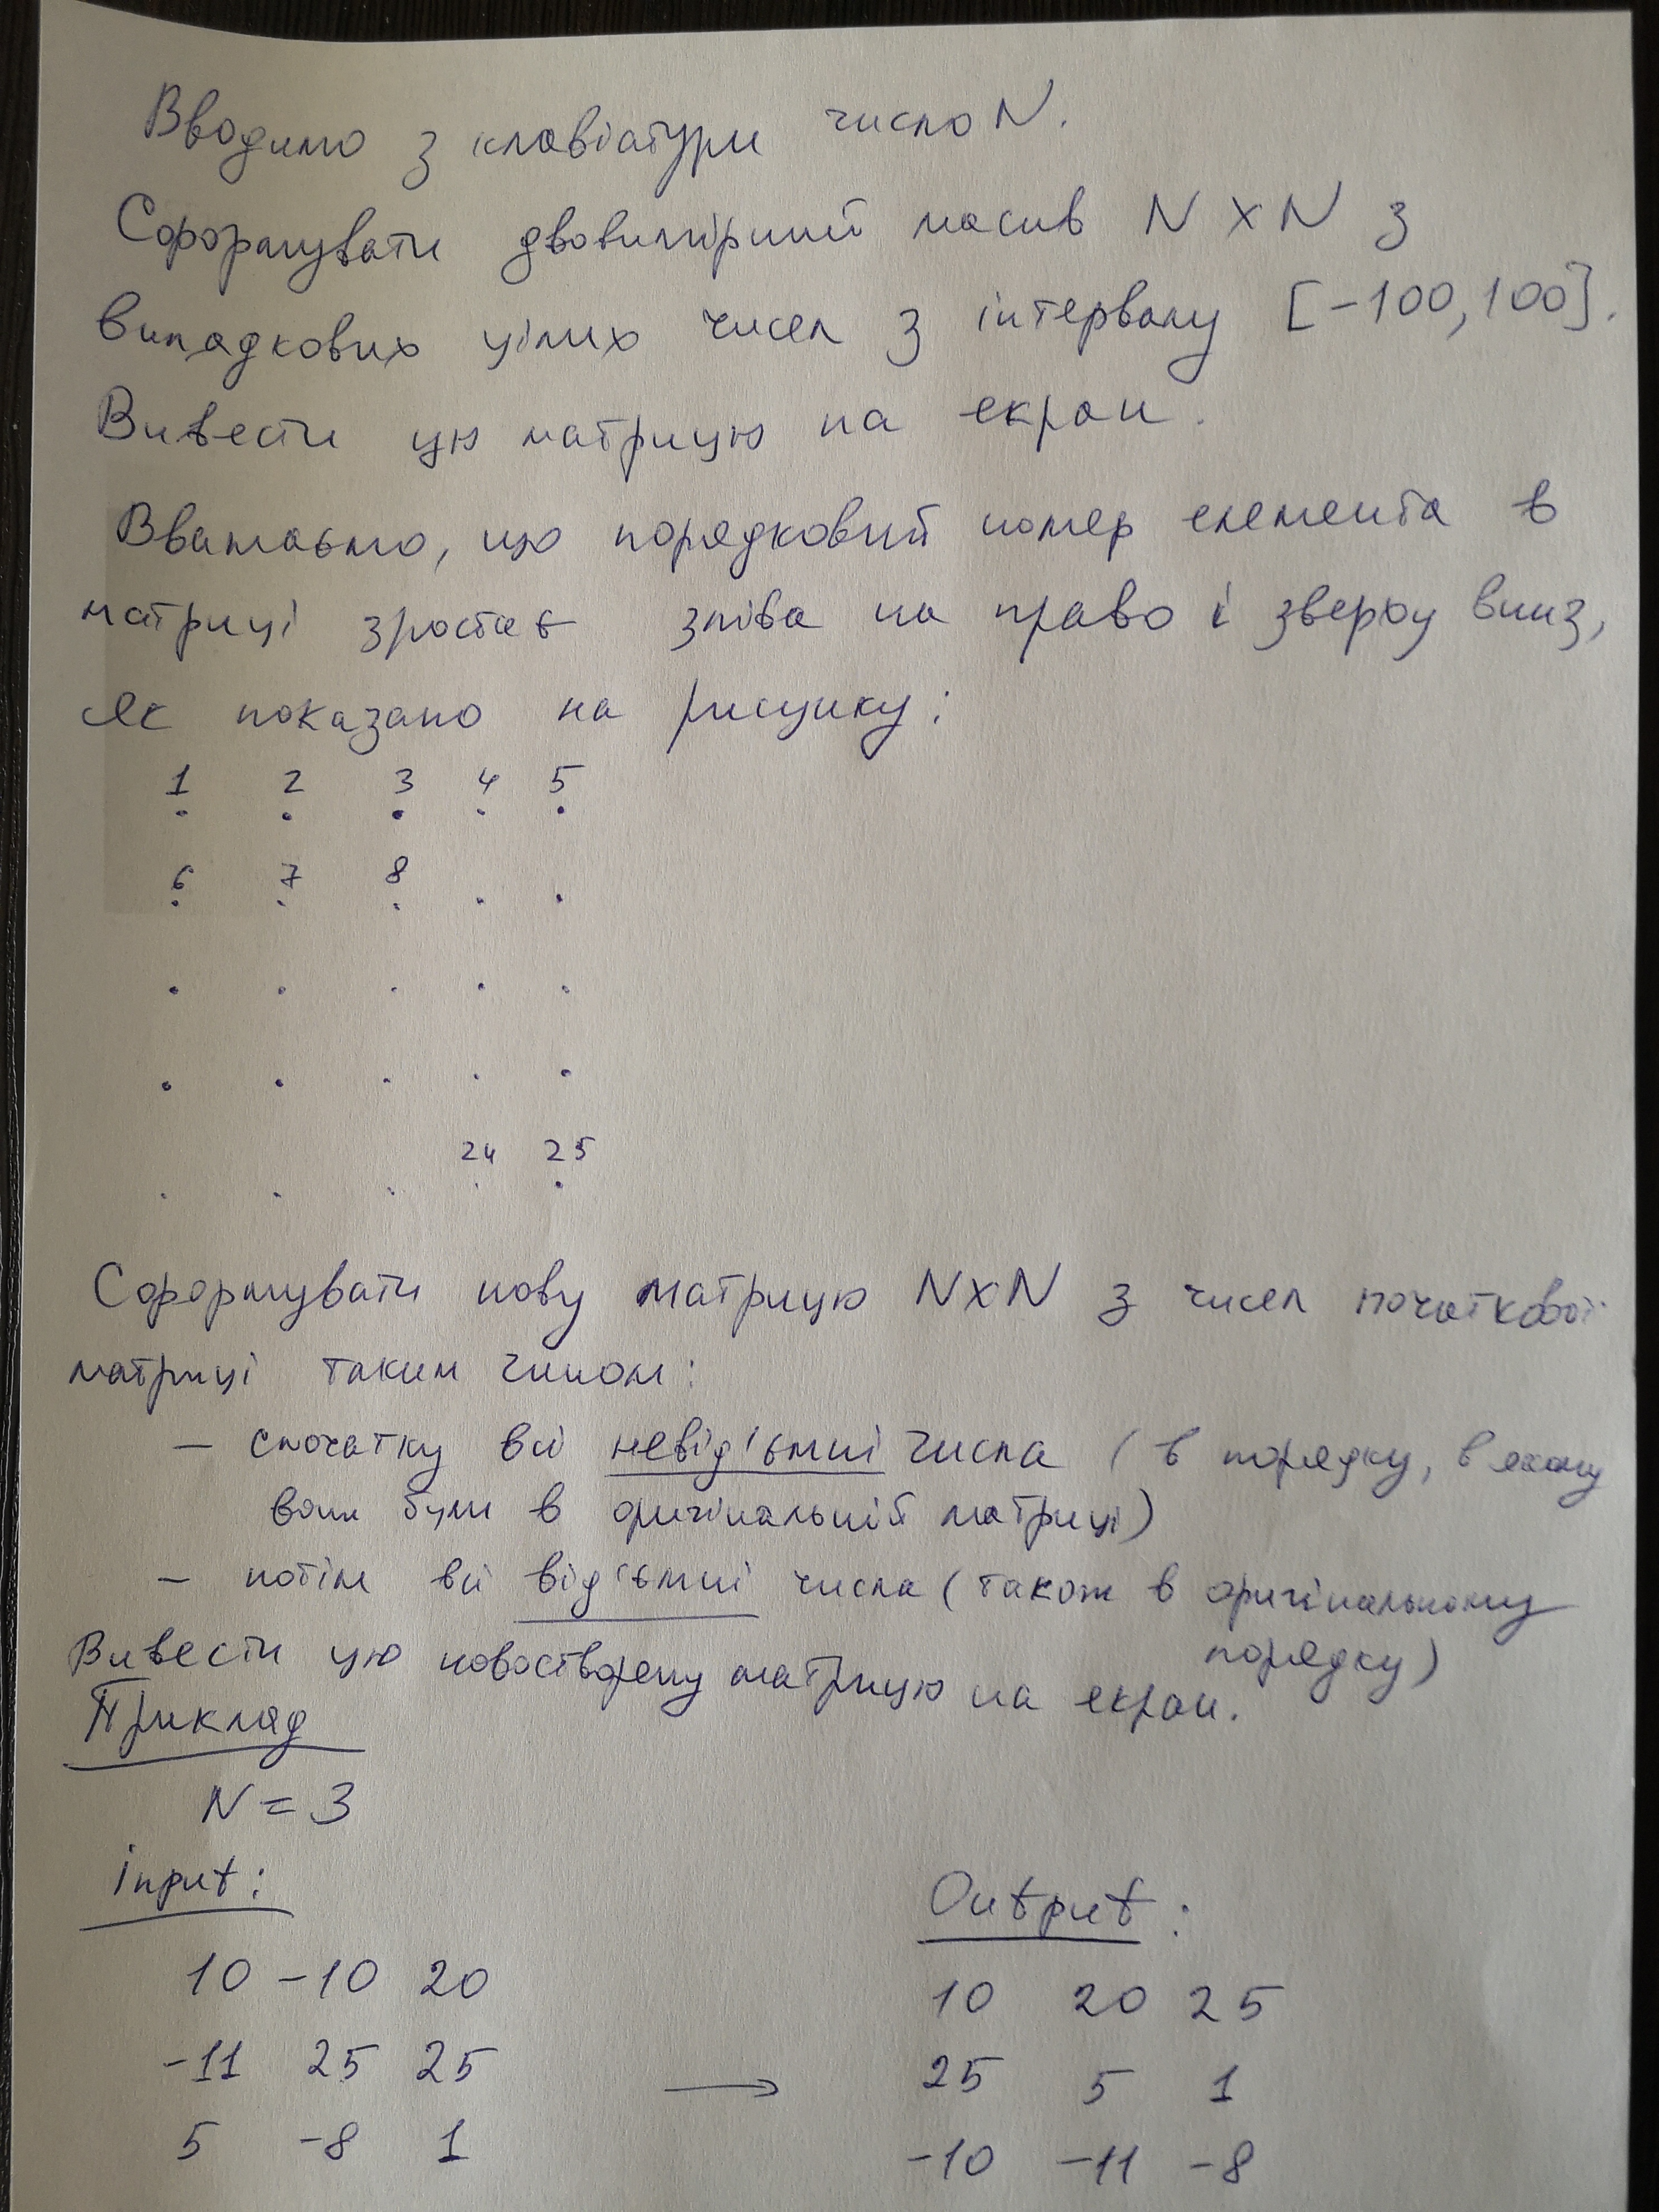 Вводимо з клавіатури число N.
Сформувати двовимірний масив N x N з
випадкових цілих чисел з інтервалу [-100, 100].
Вивести цю матрицю на екран.
Вважаємо, що порядковий номер елемента в
матриці зростає зліва на право і зверху вниз,
як показано на рисунку:
1 2 3 4 5
6 7 8 . .
. . . . .
. . . . .
24 25
Сформувати нову матрицю NxN з чисел початкової
матриці таким чином:
– спочатку всі невід'ємні числа (в порядку, в якому
вони були в оригінальній матриці)
– потім всі від'ємні числа (також в оригінальному
порядку)
Вивести цю новостворену матрицю на екран.
Приклад
N = 3
input:
10 -10 20
-11 25 25
5 -8 1
→
Output:
10 20 25
25 5 1
-10 -11 -8